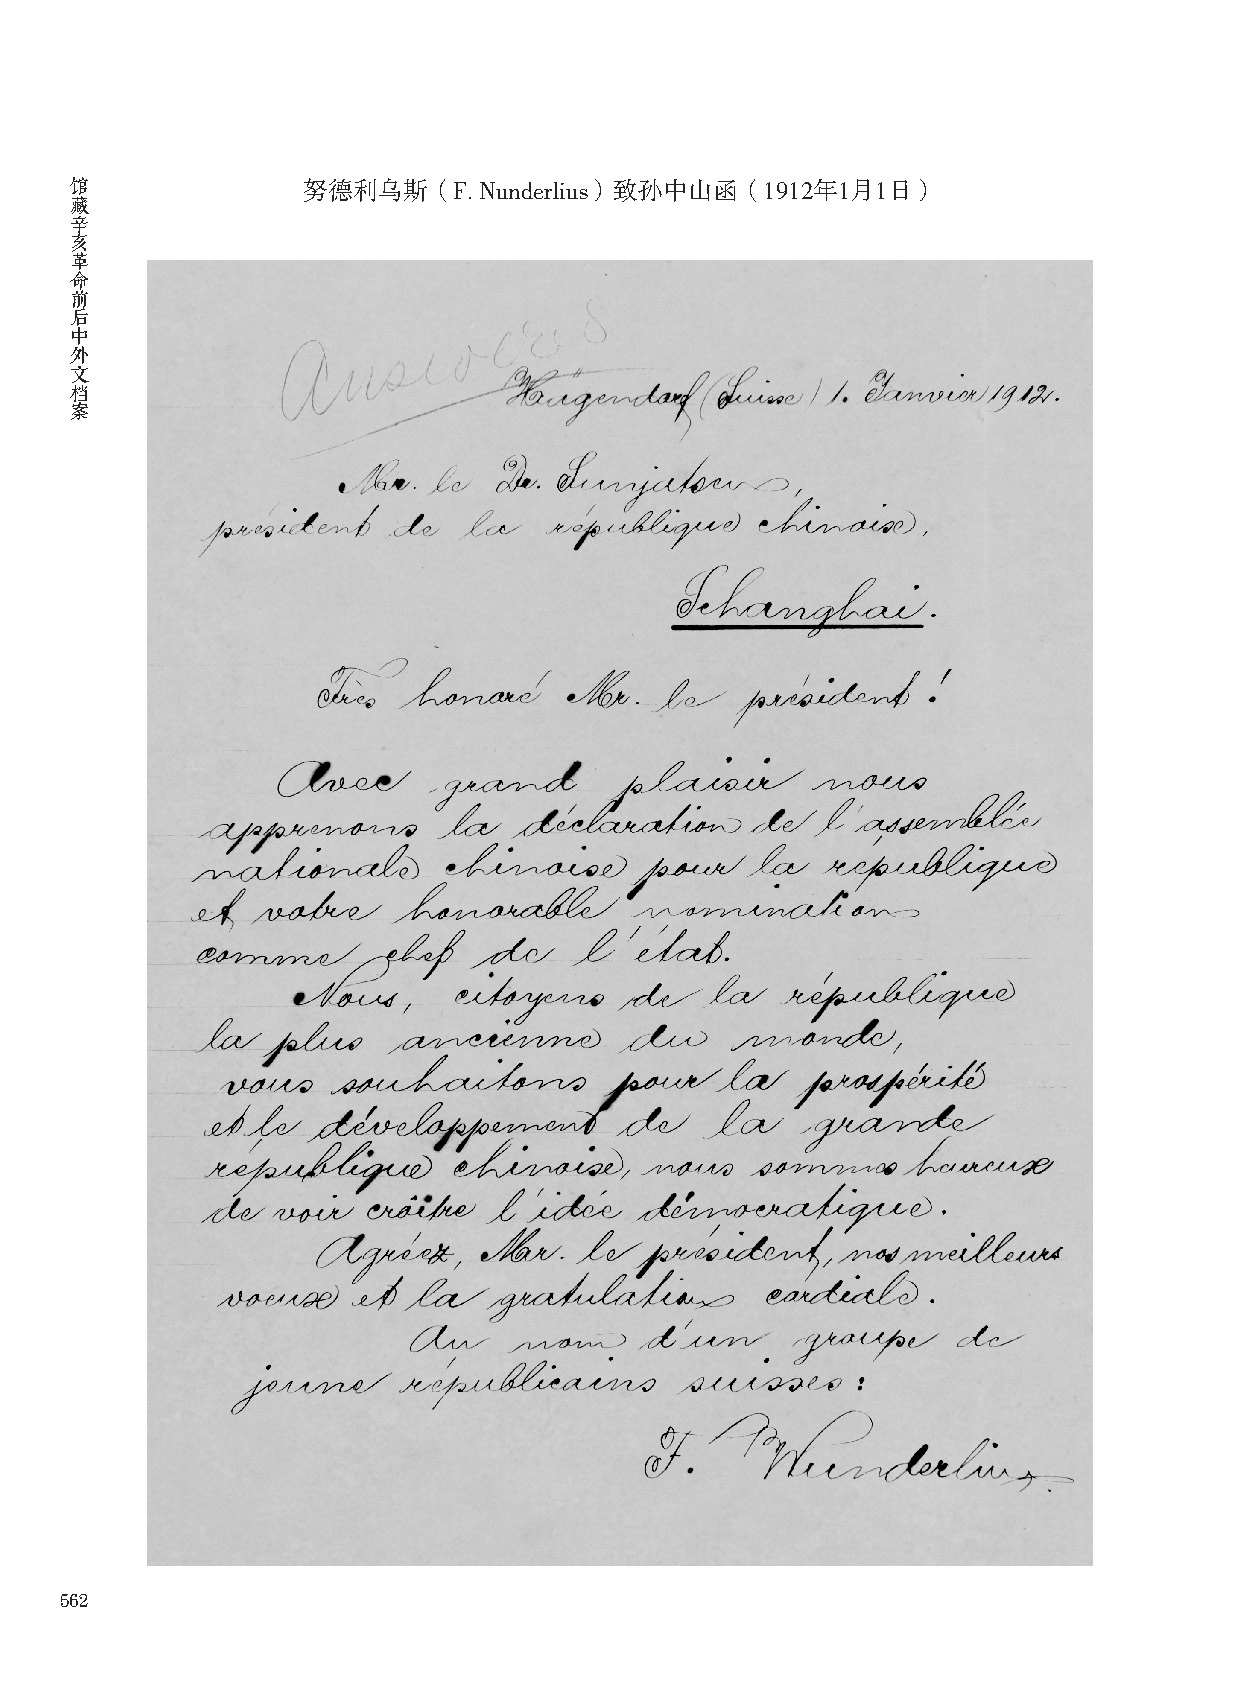 努德利乌斯（F. Nunderlius）致孙中山函（1912年1月1日）
馆藏辛亥革命前后中外文档案
(Suisse) 1. Janvier 1912.
Mr. le Dr. Sunjatsen,
président de la république chinoise,
Schanghai.
Très honoré Mr. le président!
Avec grand plaisir nous
apprenons la déclaration de l'assemblée
nationale chinoise pour la république
et votre honorable nomination
comme chef de l'état.
Nous, citoyens de la république
la plus ancienne du monde,
vous souhaitons pour la prospérité
et le développement de la grande
république chinoise, nous sommes heureux
de voir croître l'idée démocratique.
Agréez, Mr. le président, nos meilleurs
voeux et la gratulation cordiale.
Au nom d'un groupe de
jeune républicains suisses:
F. Wunderlin
562